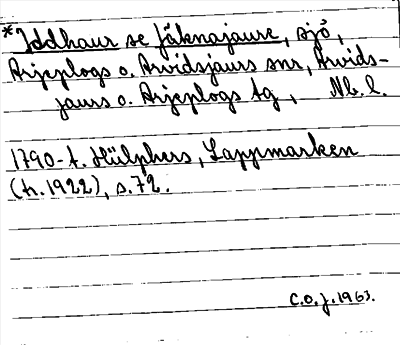 *Iddhaur se Jäknajaure, sjö,
Arjeplogs o. Arvidsjaurs snr, Arvids-
jaurs o. Arjeplogs tg, Nb. l.
1790-t. Hülphers, Lappmarken
(tr. 1922), s. 72.
C.O.J. 1963.